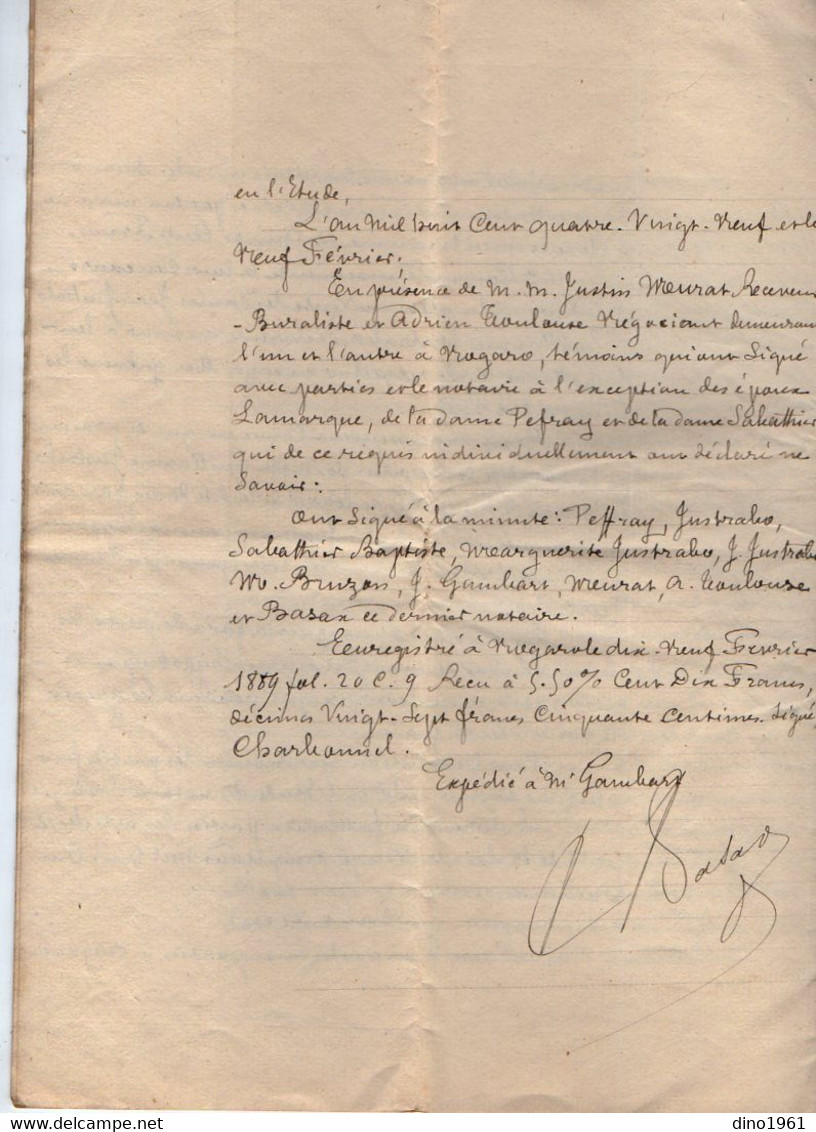 en l'Etude,
L'an Mil huit Cent quatre-Vingt-Neuf et le
Neuf Février.
En présence de M.M. Justin Meurat Receveur
-Buraliste et Adrien Toulouse Négociant demeurant
l'un et l'autre à Nogaro, témoins qui ont Signé
avec parties et le notaire à l'exception des époux
Lamarque, de la dame Peffray et de la dame Sabathier
qui de ce requis individuellement ont déclaré ne
Savoir:
Ont Signé à la minute: Peffray, Justrabo,
Sabathier Baptiste, Marguerite Justrabo, J. Justrabo
Bruzon, J. Gambart, Meurat, A. Toulouse
et Basax ce dernier notaire.
Enregistré à Nogaro le dix-Neuf Fevrier
1889 fol. 20 C. 9 Recu à 5.50% Cent Dix Francs,
décimes Vingt-Sept francs Cinquante Centimes. Signé
Charbonnel.
Expédié à M Gambart
dino1961